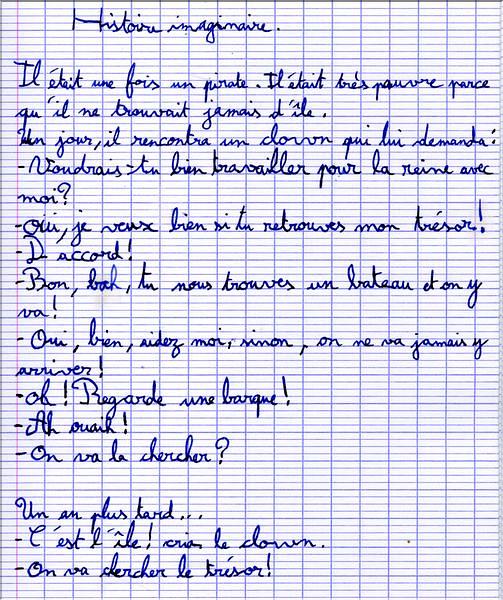 Histoire imaginaire.
Il était une fois un pirate. Il était très pauvre parce
qu'il ne trouvait jamais d'île.
Un jour, il rencontra un clown qui lui demanda :
- Voudrais-tu bien travailler pour la reine avec
moi?
- Oui, je veux bien si tu retrouves mon trésor!
- D'accord!
- Bon, bah, tu nous trouves un bateau et on y
va!
- Oui, bien, aidez moi, sinon, on ne va jamais y
arriver!
- Oh! Regarde une barque!
- Ah ouaih!
- On va la chercher?
Un an plus tard...
- C'est l'île! cria le clown.
- On va chercher le trésor!